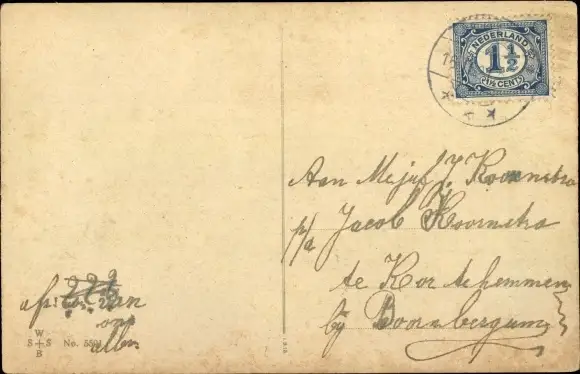 NEDERLAND
1½
1½ CENT
Aan Mejuf J. Koornstra
p/a Jacob Koornstra
te Kortehemmen
bij Boornbergum
???
van
ons
allen
W
S+S
B
No. 5591